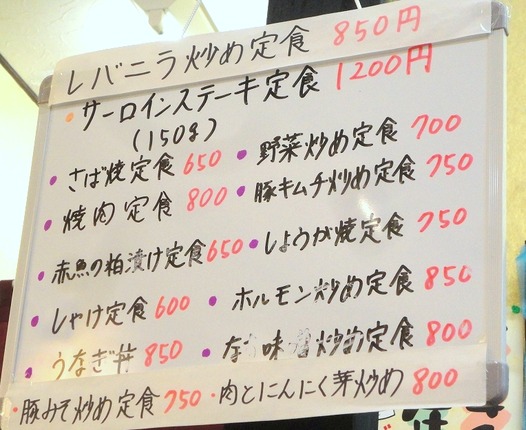 レバニラ炒め定食 850円
サーロインステーキ定食 1200円
(150g)
さば焼定食 650
焼肉定食 800
赤魚の粕漬け定食 650
しゃけ定食 600
うなぎ丼 850
野菜炒め定食 700
豚キムチ炒め定食 750
しょうが焼定食 750
ホルモン炒め定食 850
なす味噌炒め定食 800
・豚みそ炒め定食 750 ・肉とにんにく芽炒め 800